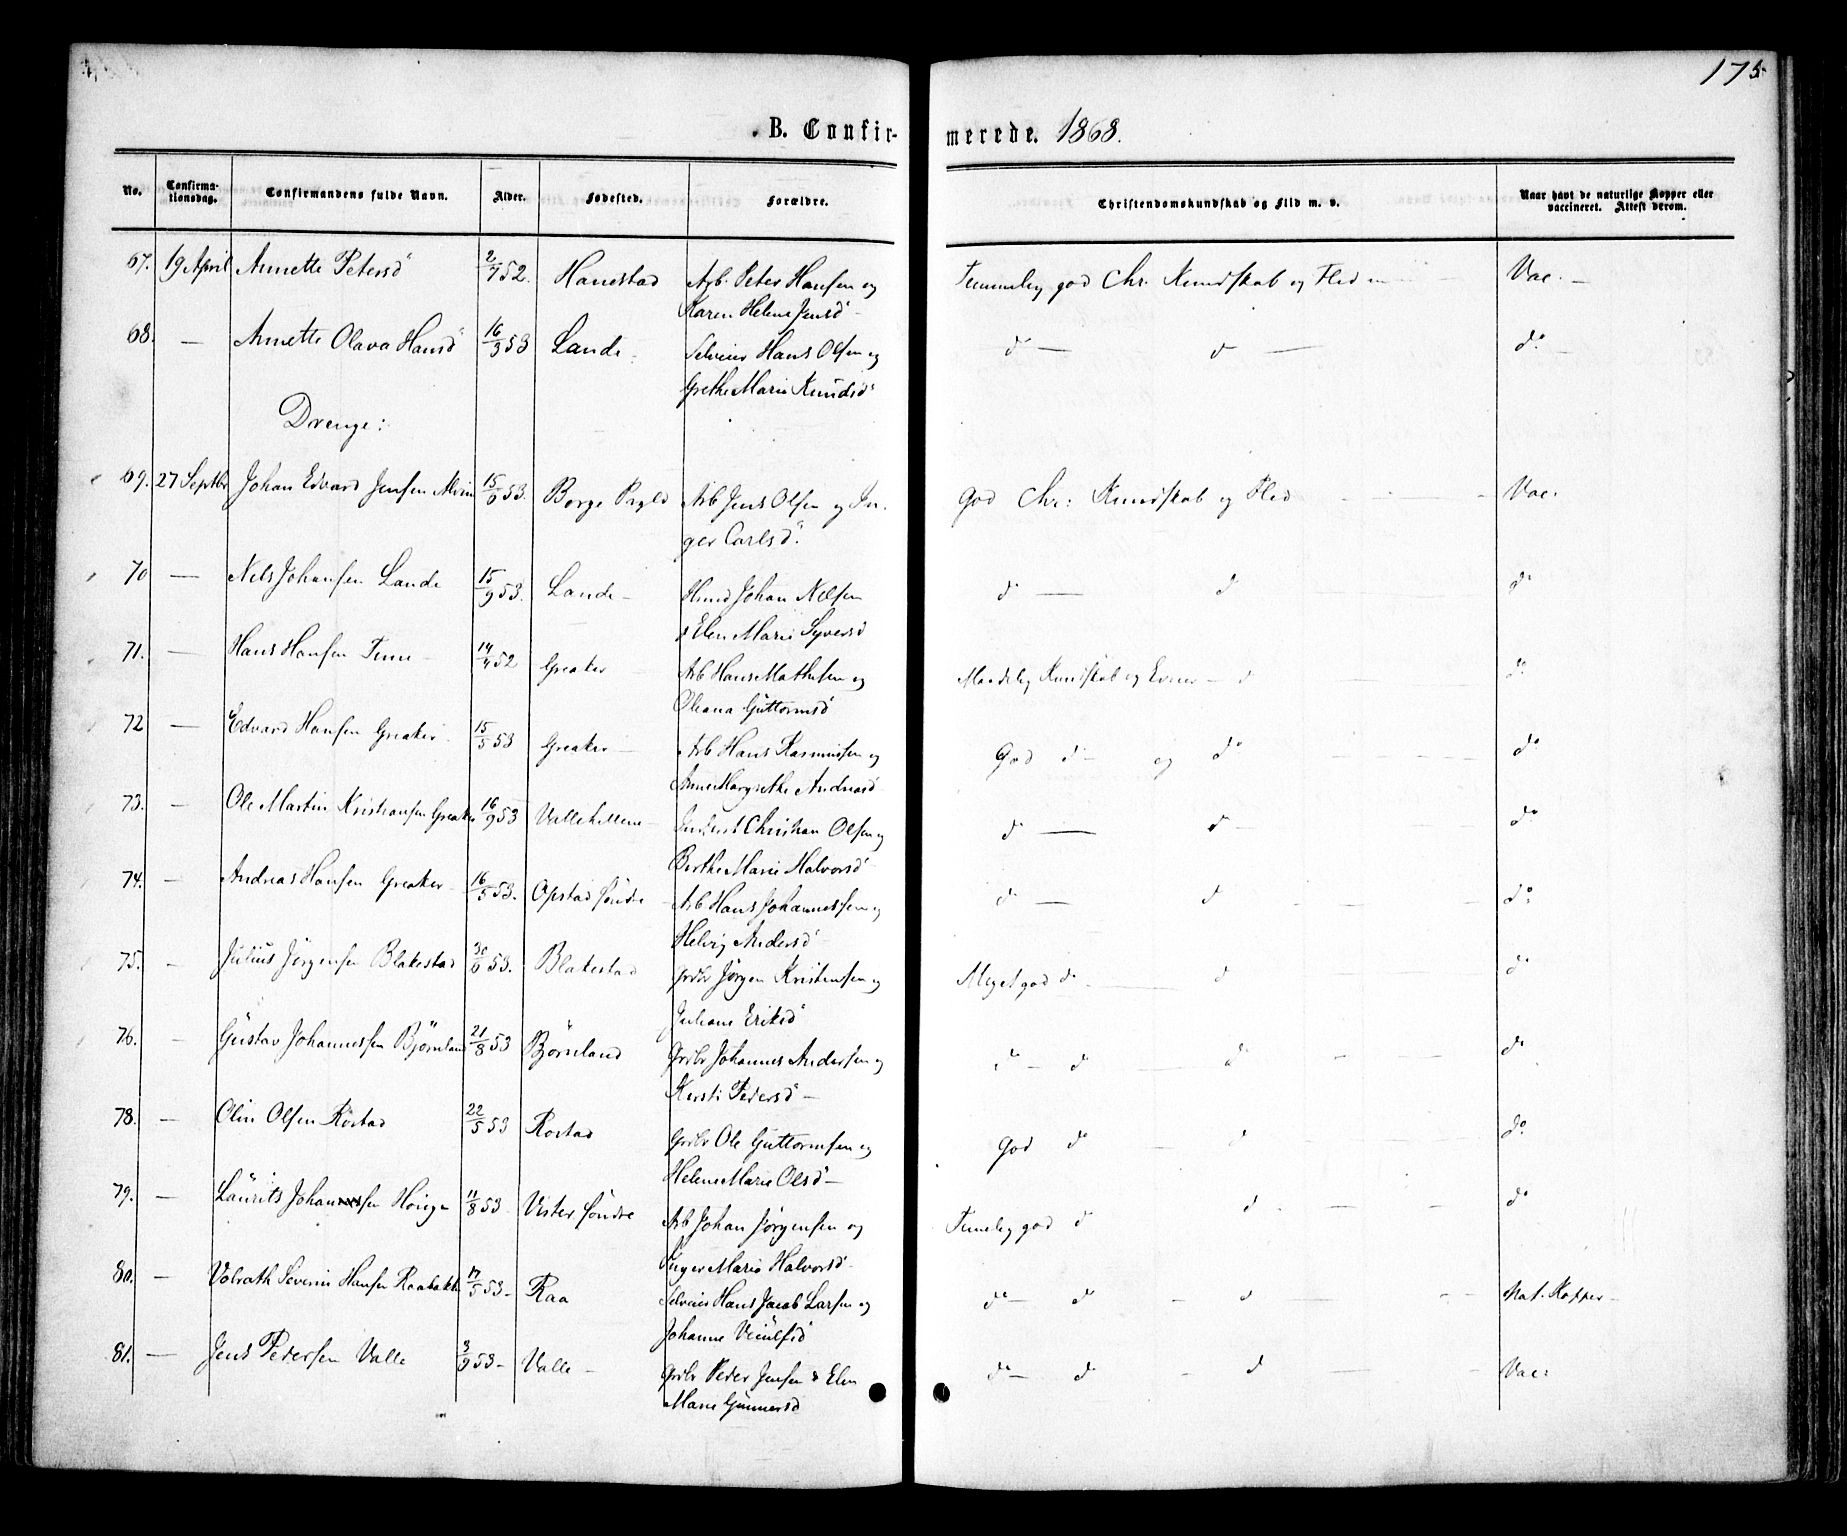 175
B. Confirmerede. 1868.
No. Confirmationsdag. Confirmandens fulde Navn. Alder. Fødested. Forældre. Christendomskundskab og Flid m. v. Naar havt de naturlige Kopper eller vaccineret. Attest derom.
67. 19 April Annette Petersd 2/7 52. Hanestad Arb. Peter Hansen og Temmelig god Chr. Kundskab og Flid Vac. —
Karen Helene Jensd —
68. — Annette Olava Hansd 16/3 53 Lande Selveier Hans Olsen og d — d — do
Grethe Marie Knudsd
Drenge:
69. 27 Septbr Johan Edvard Jensen Alvim 15/6 53. Borge Prgld Arb Jens Olsen og In- God Chr: Kundskab og Flid Vac.
ger Carlsd.
70 — Nels Johansen Lande 15/9 53. Lande — Huusm Johan Nelsen d — d do
& Elen Marie Syversd
71. — Hans Hansen Tune — 14/4 52 Greaker Arb Hans Mathisen og Maadelig Kundskab og Evner — d do
Oleana Guttormsd
72 — Edvard Hansen Greaker 15/5 53 Greaker — Arb Hans Rasmussen og God d — og do do
Anne Margrethe Andreasd
73. — Ole Martin Kristiansen Greaker 16/9 53 Vallehellene — Christian Olsen og d — d — do
Berthe Marie Halvorsd —
74. — Andreas Hansen Greaker 16/5 53. Opstad søndre Arb Hans Johannessen og d — d do
Helvig Andersd —
75. — Julius Jørgensen Blakestad 30/6 53. Blakestad Grdbr Jørgen Kristensen og Meget god do — d do
Juliane Eriksd
76. — Gustav Johannessen Bjørnland 21/8 53 Bjørnland Grdbr Johannes Andersen og do — d do do
Kersti Pedersd —
78. — Olin Olsen Rostad 22/5 53 Rostad Grdbr Ole Guttormsen og God do — d do
Helene Marie Olsd —
79. — Laurits Johansen 11/8 53 Vister søndre Arb Johan Jørgensen og Temelig god d d do
Inger Marie Halvorsd
80. — Volrath Severin Hansen Raabakke 17/5 53 — Raa Selveier Hans Jacob Larsen og do — do — d — Nat. Kopper —
Johanne
81. — Jens Pedersen Valle 3/9 53 — Valle — Grdbr Peder Jensen & Elen do — d — d — Vac:
Marie Gunnersd